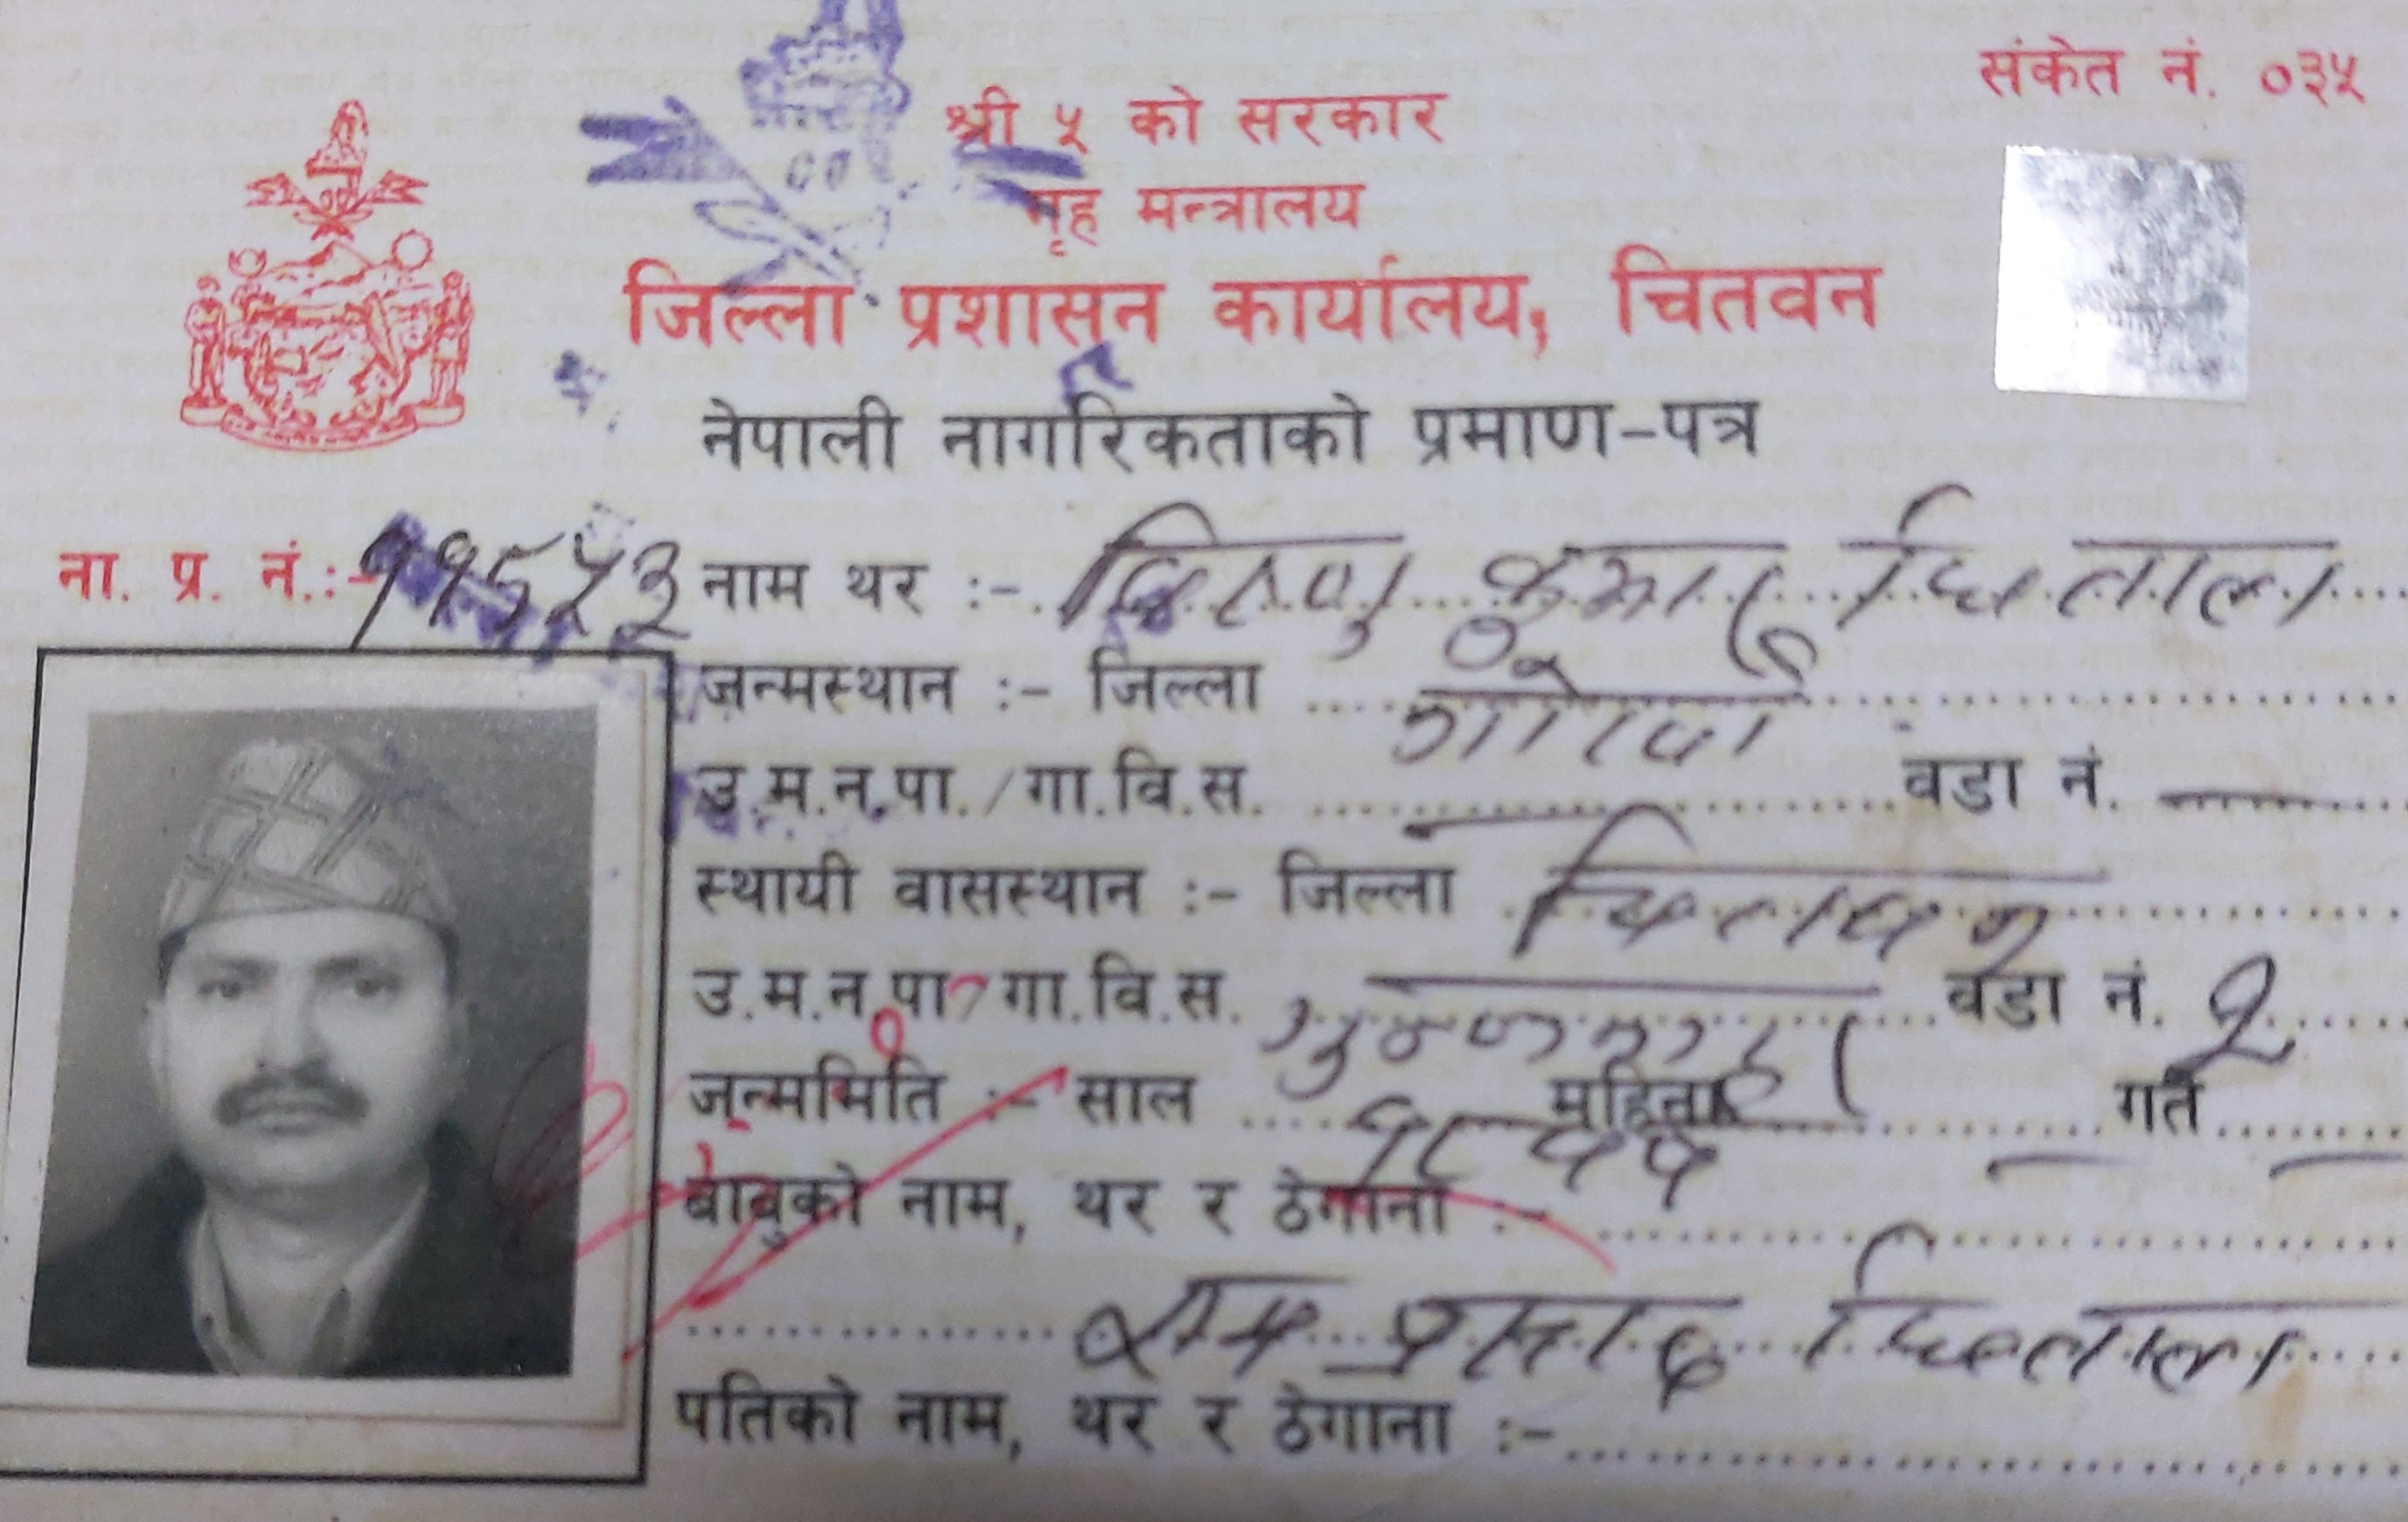 संकेत नं. ०३५
श्री ५ को सरकार
गृह मन्त्रालय
जिल्ला प्रशासन कार्यालय, चितवन
नेपाली नागरिकताको प्रमाण-पत्र
ना. प्र. नं.:- नाम थर :- विष्णु कुमार धिताल
जन्मस्थान :- जिल्ला गोरखा
उ.म.न.पा./गा.वि.स. वडा नं. —
स्थायी वासस्थान :- जिल्ला चितवन
उ.म.न.पा/गा.वि.स. वडा नं. २
जन्ममिति :- साल महिना गते
बाबुको नाम, थर र ठेगाना :-
राम प्रसाद धिताल
पतिको नाम, थर र ठेगाना :-